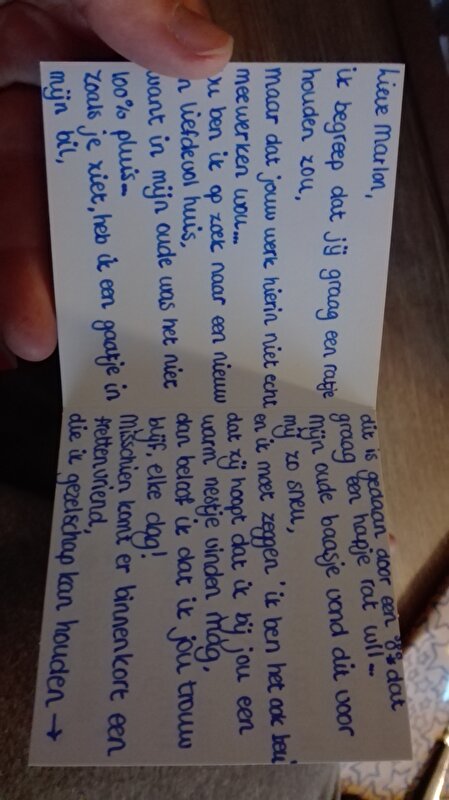 Lieve Marlon,
ik begreep dat jij graag een ratje
houden zou,
maar dat jouw werk hierin niet echt
meewerken wou...
ben ik op zoek naar een nieuw
liefdevol huis,
want in mijn oude was het niet
100% pluis...
zoals je ziet, heb ik een gaatje in
mijn bil,
dit is gedaan door een dat
graag een hapje rat wil...
mijn oude baasje vond dit voor
mij zo sneu,
en ik moet zeggen 'ik ben het ook beu'
dat zij hoopt dat ik bij jou een
warm nestje vinden mag,
dan beloof ik dat ik jou trouw
blijf, elke dag!
Misschien komt er binnenkort een
rattenvriend,
die ik gezelschap kan houden →